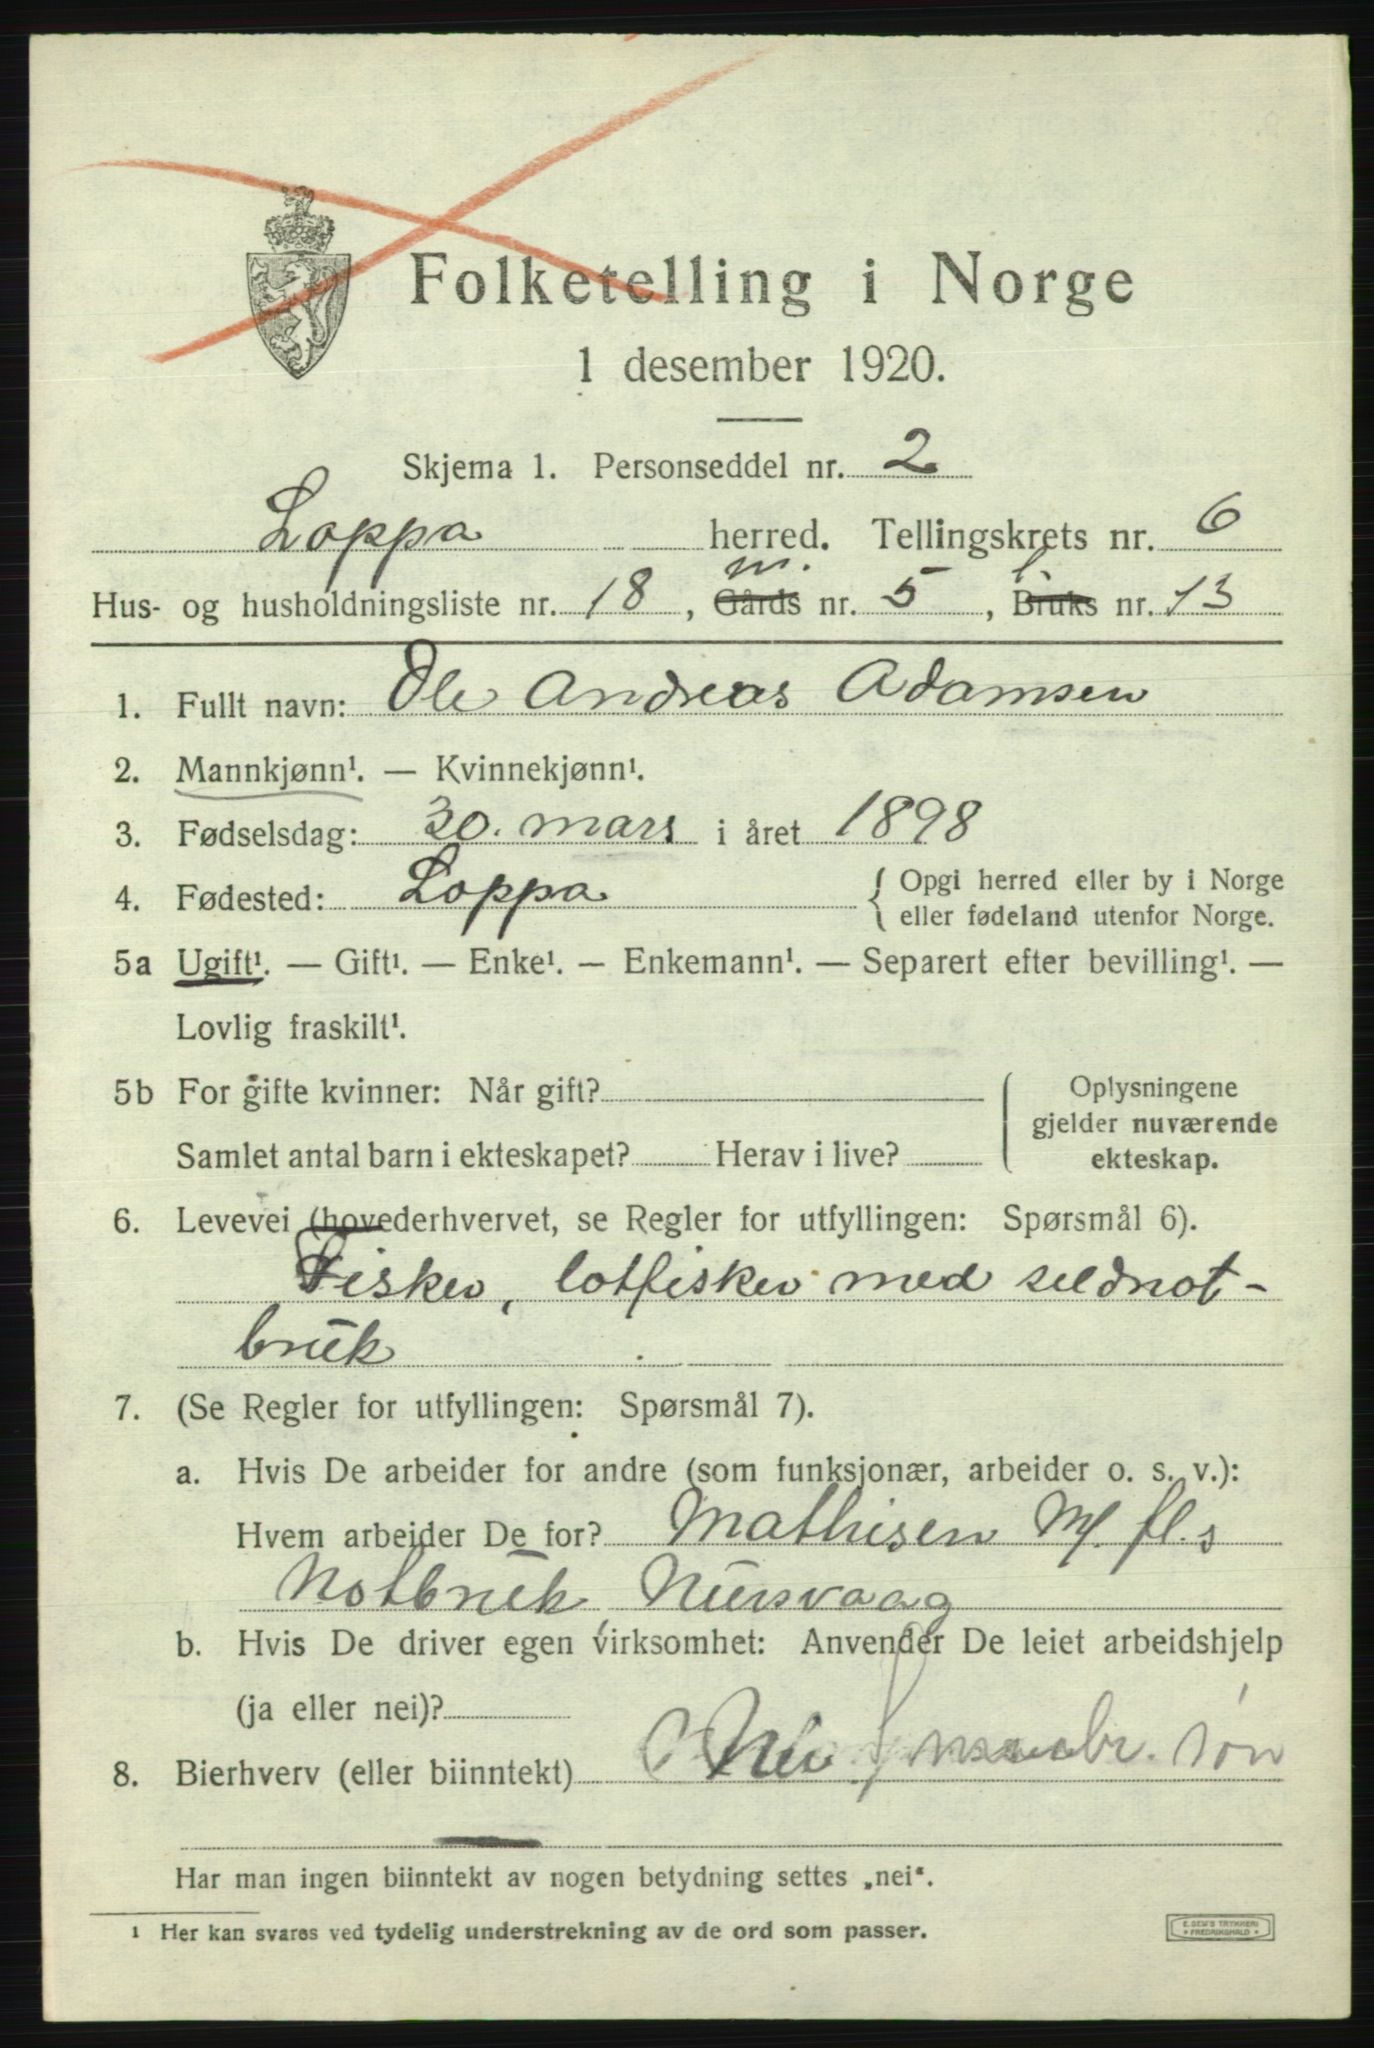 Folketelling i Norge
1 desember 1920.
Skjema 1. Personseddel nr. 2
Loppa herred. Tellingskrets nr. 6
m. l.
Hus- og husholdningsliste nr. 18, Gårds nr. 5, Bruks nr. 13
1. Fullt navn: Ole Andreas Adamsen
2. Mannkjønn¹. — Kvinnekjønn¹.
3. Fødselsdag: 30. mars i året 1898
4. Fødested: Loppa { Opgi herred eller by i Norge
eller fødeland utenfor Norge.
5a Ugift¹. — Gift¹. — Enke¹. — Enkemann¹. — Separert efter bevilling¹. —
Lovlig fraskilt¹.
5b For gifte kvinner: Når gift? Oplysningene
gjelder nuværende
Samlet antal barn i ekteskapet? Herav i live? ekteskap.
6. Levevei (hovederhvervet, se Regler for utfyllingen: Spørsmål 6).
Fisker, lotfisker med seldnot-
bruk
7. (Se Regler for utfyllingen: Spørsmål 7).
a. Hvis De arbeider for andre (som funksjonær, arbeider o. s. v.):
Hvem arbeider De for? Mathisen M. fl.s
Notbruk, Nuvsvaag
b. Hvis De driver egen virksomhet: Anvender De leiet arbeidshjelp
(ja eller nei)?
8. Bierhverv (eller biinntekt) søn
Har man ingen biinntekt av nogen betydning settes „nei“.
¹ Her kan svares ved tydelig understrekning av de ord som passer.
E. SEM'S TRYKKERI
FREDRIKSHALD